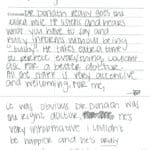 Dr Donath really goes the
extra mile. He listens and hears
what you have to say and
fully informs without being
"bully". He takes extra time
to perfect everything. Couldn't
ask for a better doctor.
All the staff is very attentive
and welcoming. For me,
it was obvious Dr Donath was
the right doctor, He's
very informative I couldn't
be happier and he's really